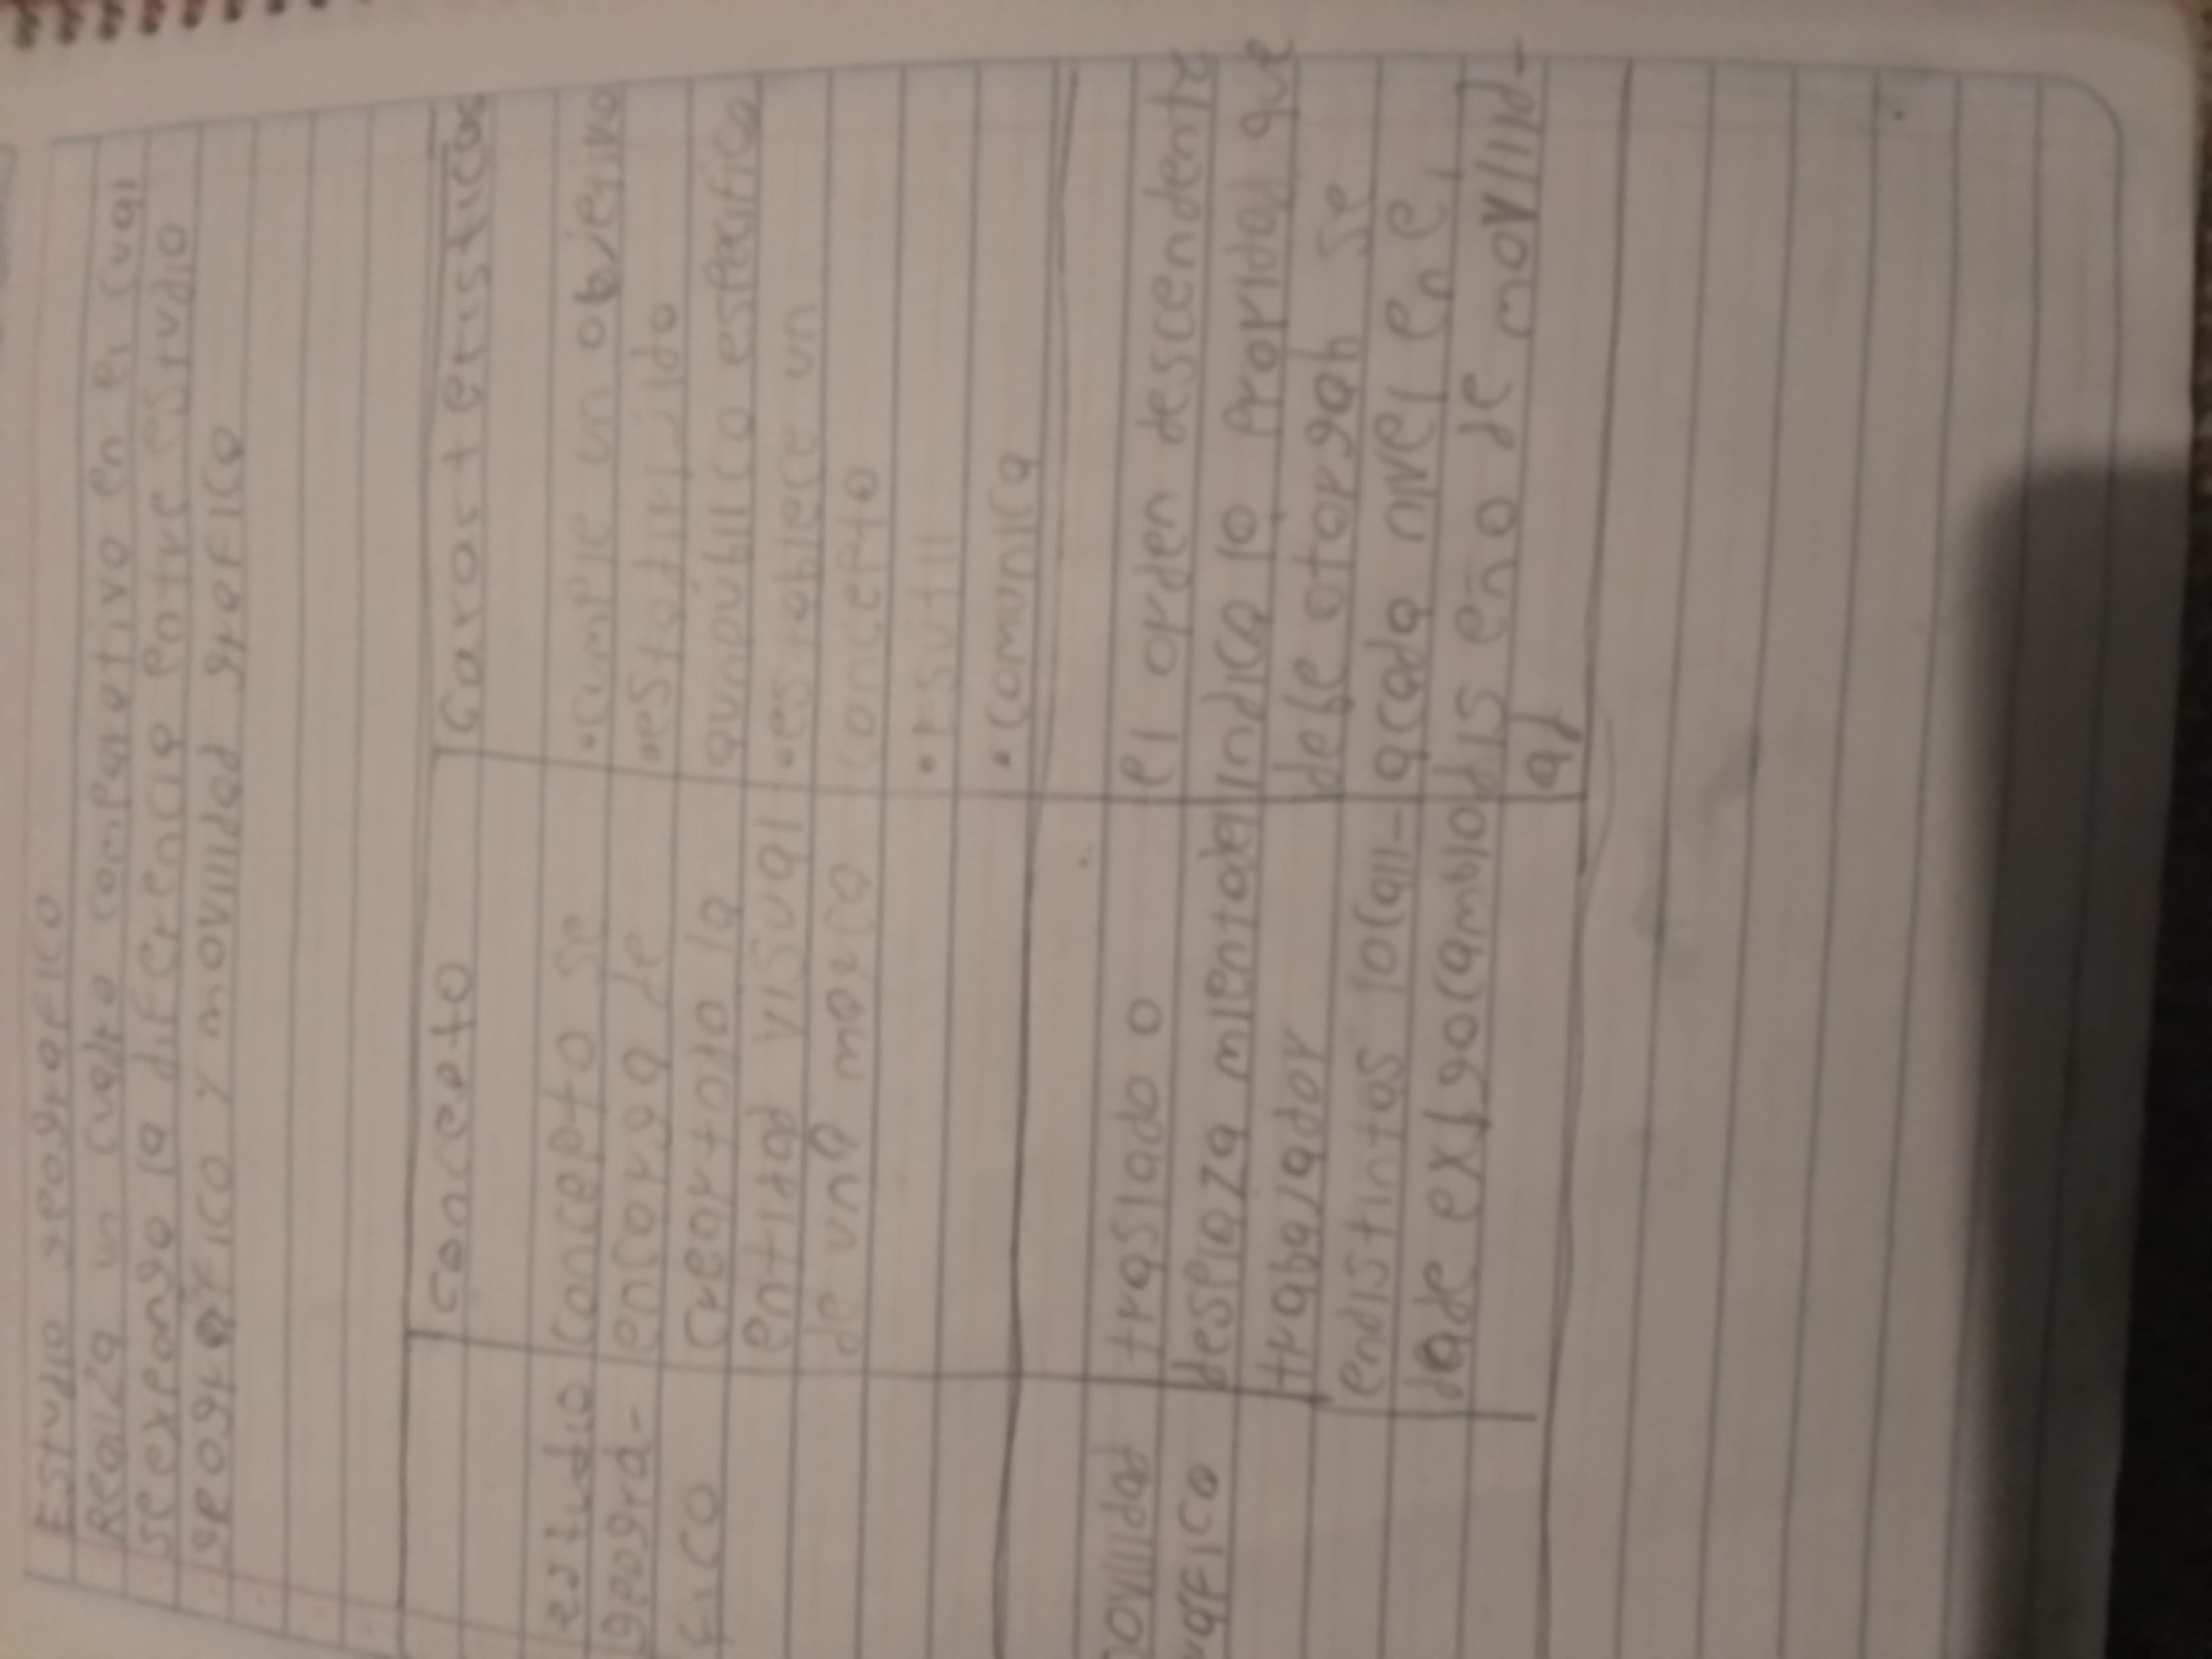 Estudio geografico
Realiza un cuadro comparativo en el cual
se exponga la diferencia entre estudio
geografico y movilidad grafica
concepto
Carosteristicas
estudio
geogra-
fico
concepto se
encarga de
crear toda la
entidad visual
de una marca
•cumple un objetivo
•establecido
aunpúblico especifico
•establece un
concepto
•
•comunica
ovilidad
rafica
traslado o
desplaza mientodel
trabajador
endistintas locali-
dade
el orden descendente
indica la proridad que
debe otorgah se
acada nivel en el
de movilid-
ad